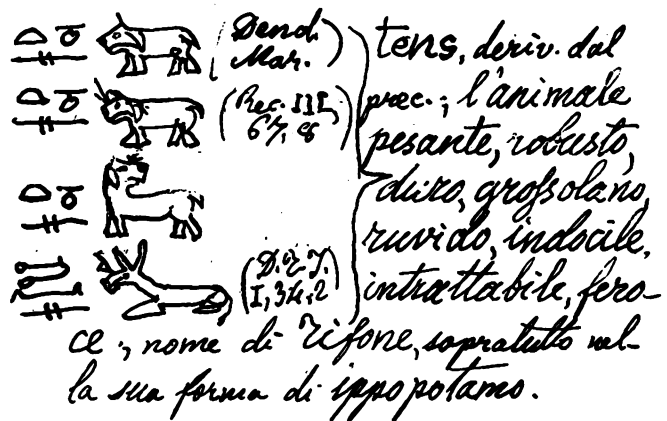 (Dend. Mar.) tens, deriv. dal
(Rec. III, 67, 8) prec.; l'animale
pesante, robusto,
duro, grossolano,
ruvido, indocile,
(D. Z. I, 34, 2) intrattabile, fero-
ce; nome di Tifone, sopratutto nel-
la sua forma di ippopotamo.